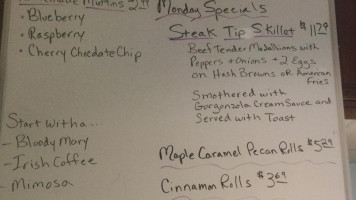 Muffins 2.99
• Blueberry
• Raspberry
• Cherry Chocolate Chip
Start with a...
- Bloody Mary
- Irish Coffee
- Mimosa
Monday Specials
Steak Tip Skillet $11.29
Beef Tender Medallions with
Peppers + Onions + 2 Eggs
on Hash Browns or American
Fries
Smothered with
Gorgonzola Cream Sauce and
Served with Toast
Maple Caramel Pecan Rolls $5.29
Cinnamon Rolls $3.69